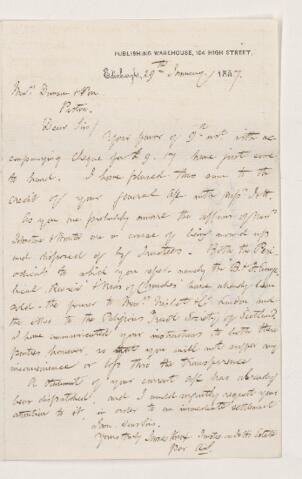 PUBLISHING WAREHOUSE, 104 HIGH STREET.
Edinburgh, 29th January 1887.
Messrs
Boston
Dear Sirs/
Your favor of 9th inst with ac-
companying cheque for have just come
to hand. I have placed this sum to the
credit of your general a/c with Messrs
As you are probably aware the affairs of Messrs
are in course of being wound up
and disposed of by Trustees. Both the Peri-
odicals to which you refer, namely the "
Review & of Churches have already been
sold - the former to Messrs & Co London and
the other to the Religious Tract Society of Scotland
I have communicated your instructions to both these
Parties however, so that you will not suffer any
inconvenience or loss thro the transference
A statement of your current a/c has already
been dispatched, and I would urgently request your
attention to it, in order to an immediate settlement
Dear Sirs
Yours truly James Estate
Per